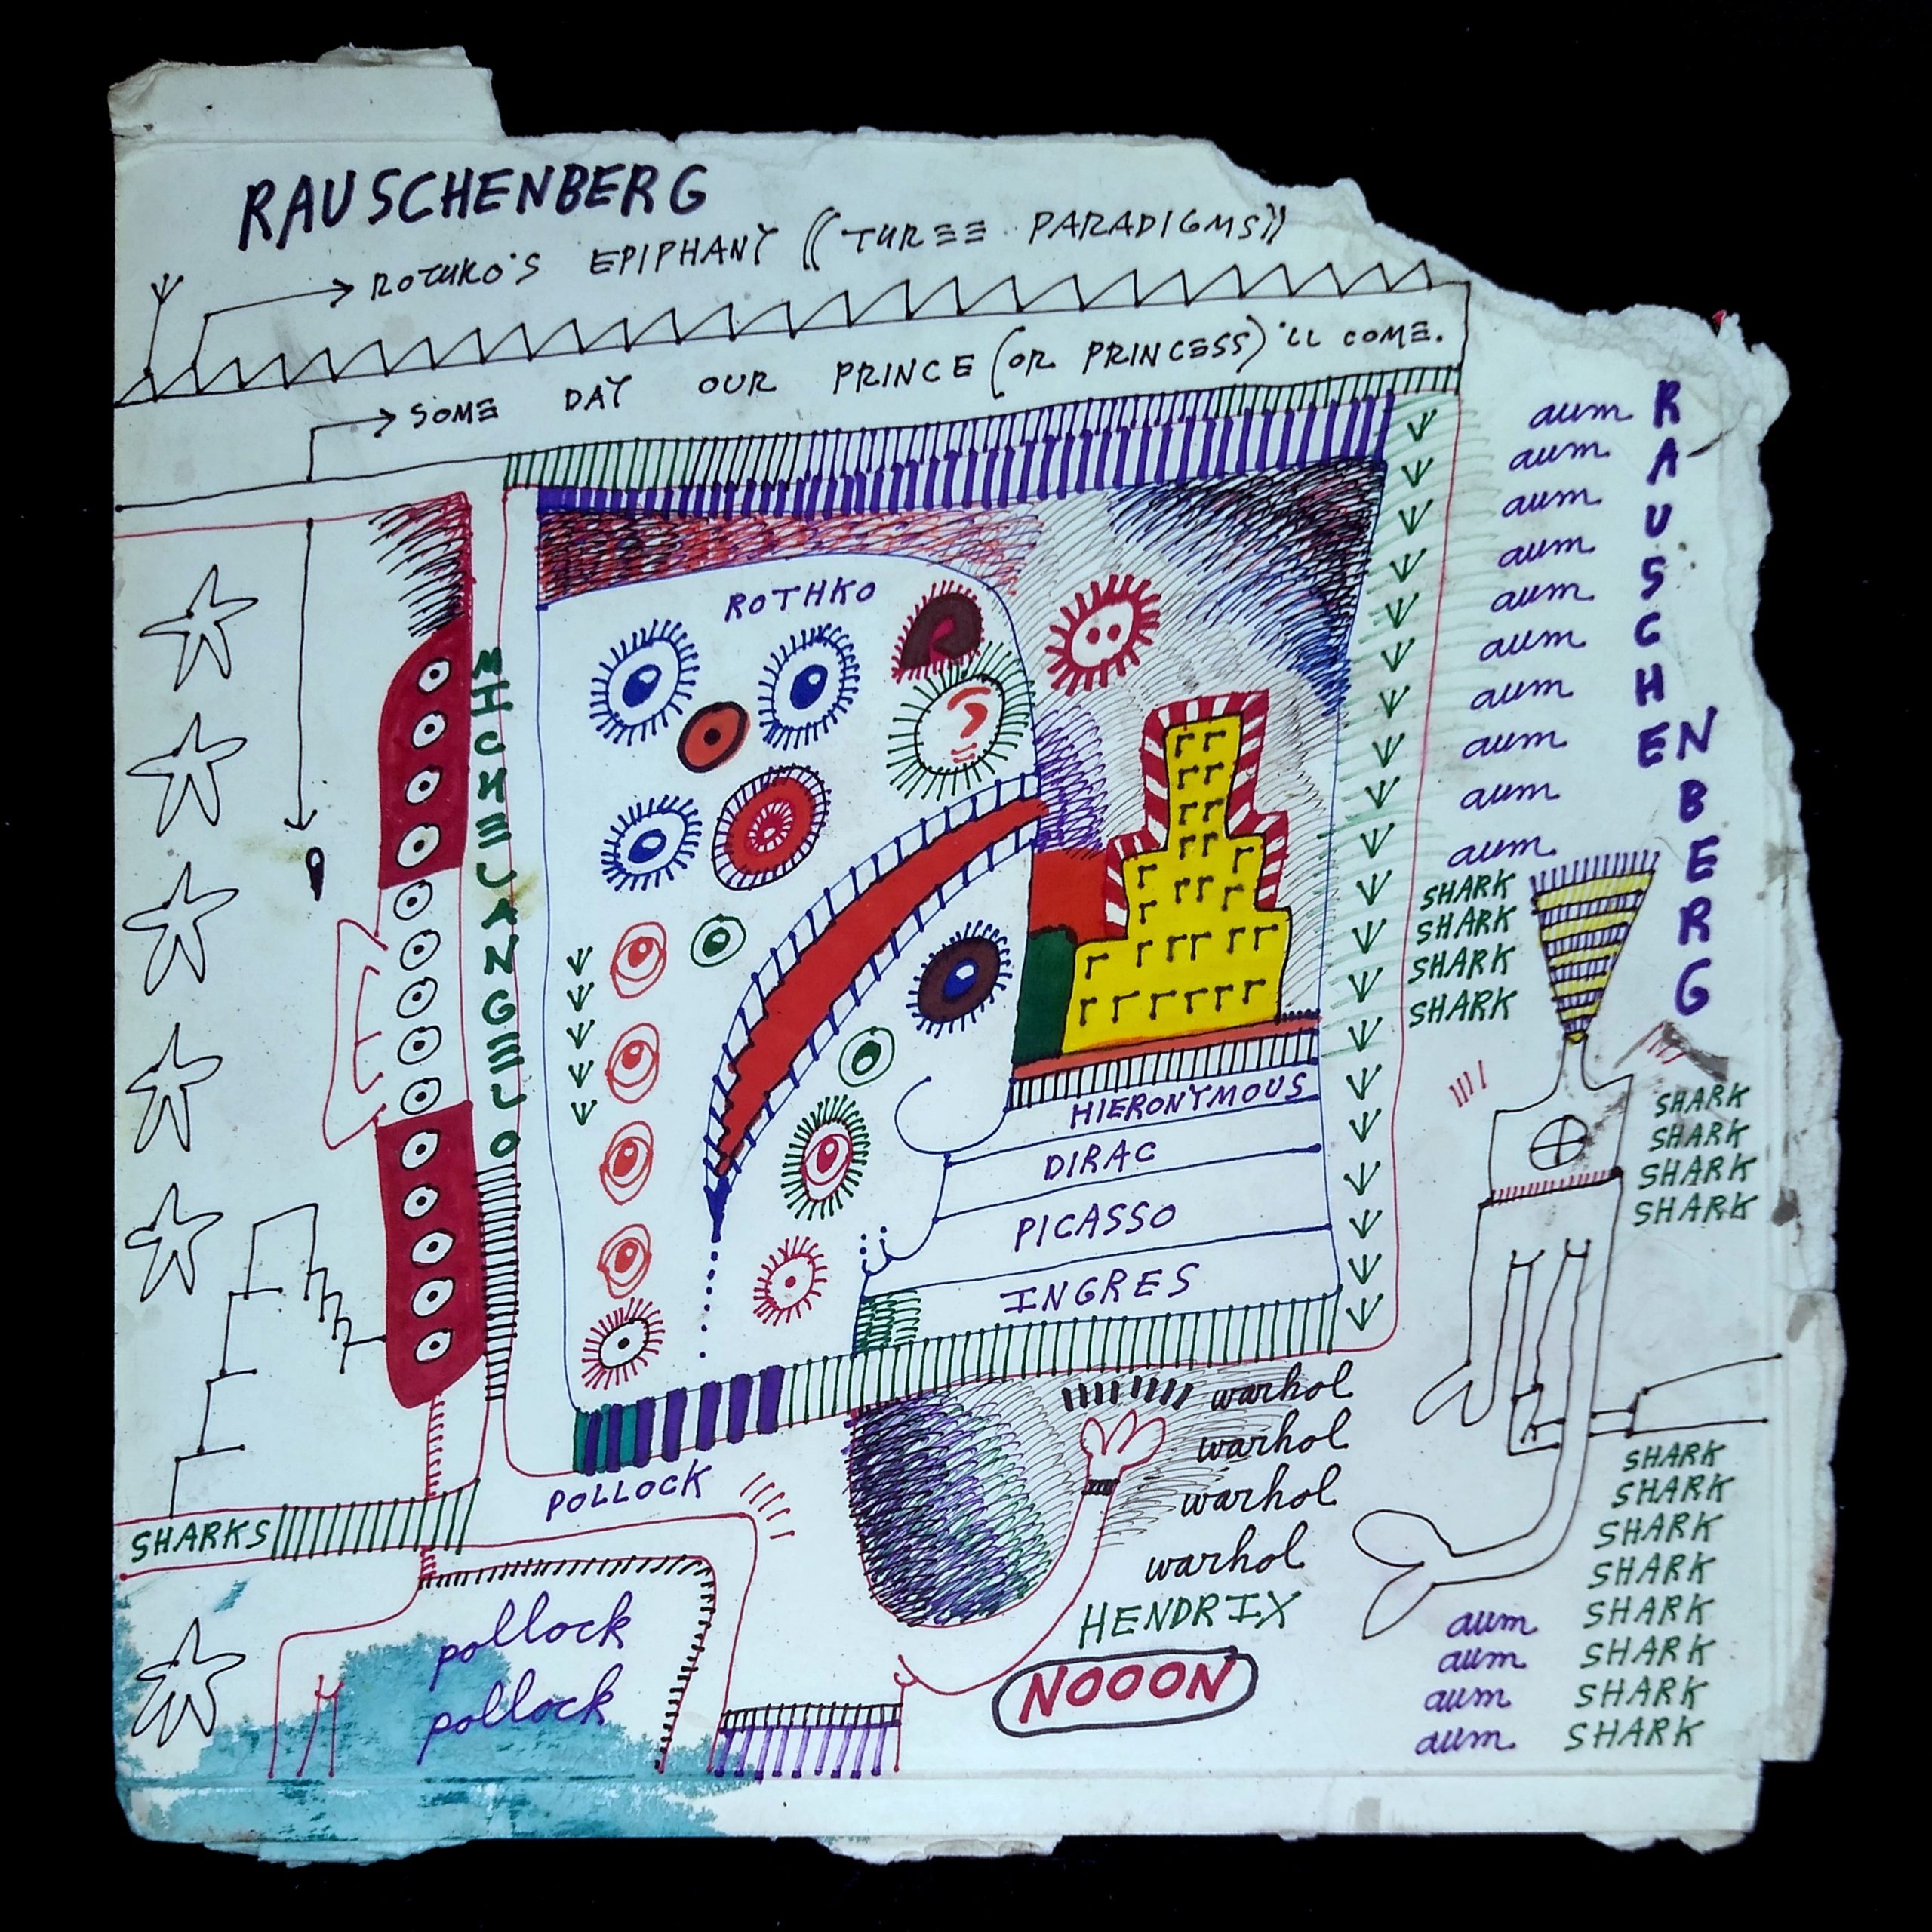 RAUSCHENBERG
ROTHKO'S EPIPHANY ((THREE PARADIGMS))
SOME DAY OUR PRINCE (OR PRINCESS)'LL COME.
MICHELANGELO
ROTHKO
?
HIERONYMOUS
DIRAC
PICASSO
INGRES
aum
aum
aum
aum
aum
aum
aum
aum
aum
aum
RAUSCHENBERG
SHARK
SHARK
SHARK
SHARK
SHARK
SHARK
SHARK
SHARK
SHARKS
POLLOCK
pollock
pollock
warhol
warhol
warhol
warhol
HENDRIX
NOOON
SHARK
SHARK
SHARK
SHARK
aum SHARK
aum SHARK
aum SHARK
aum SHARK